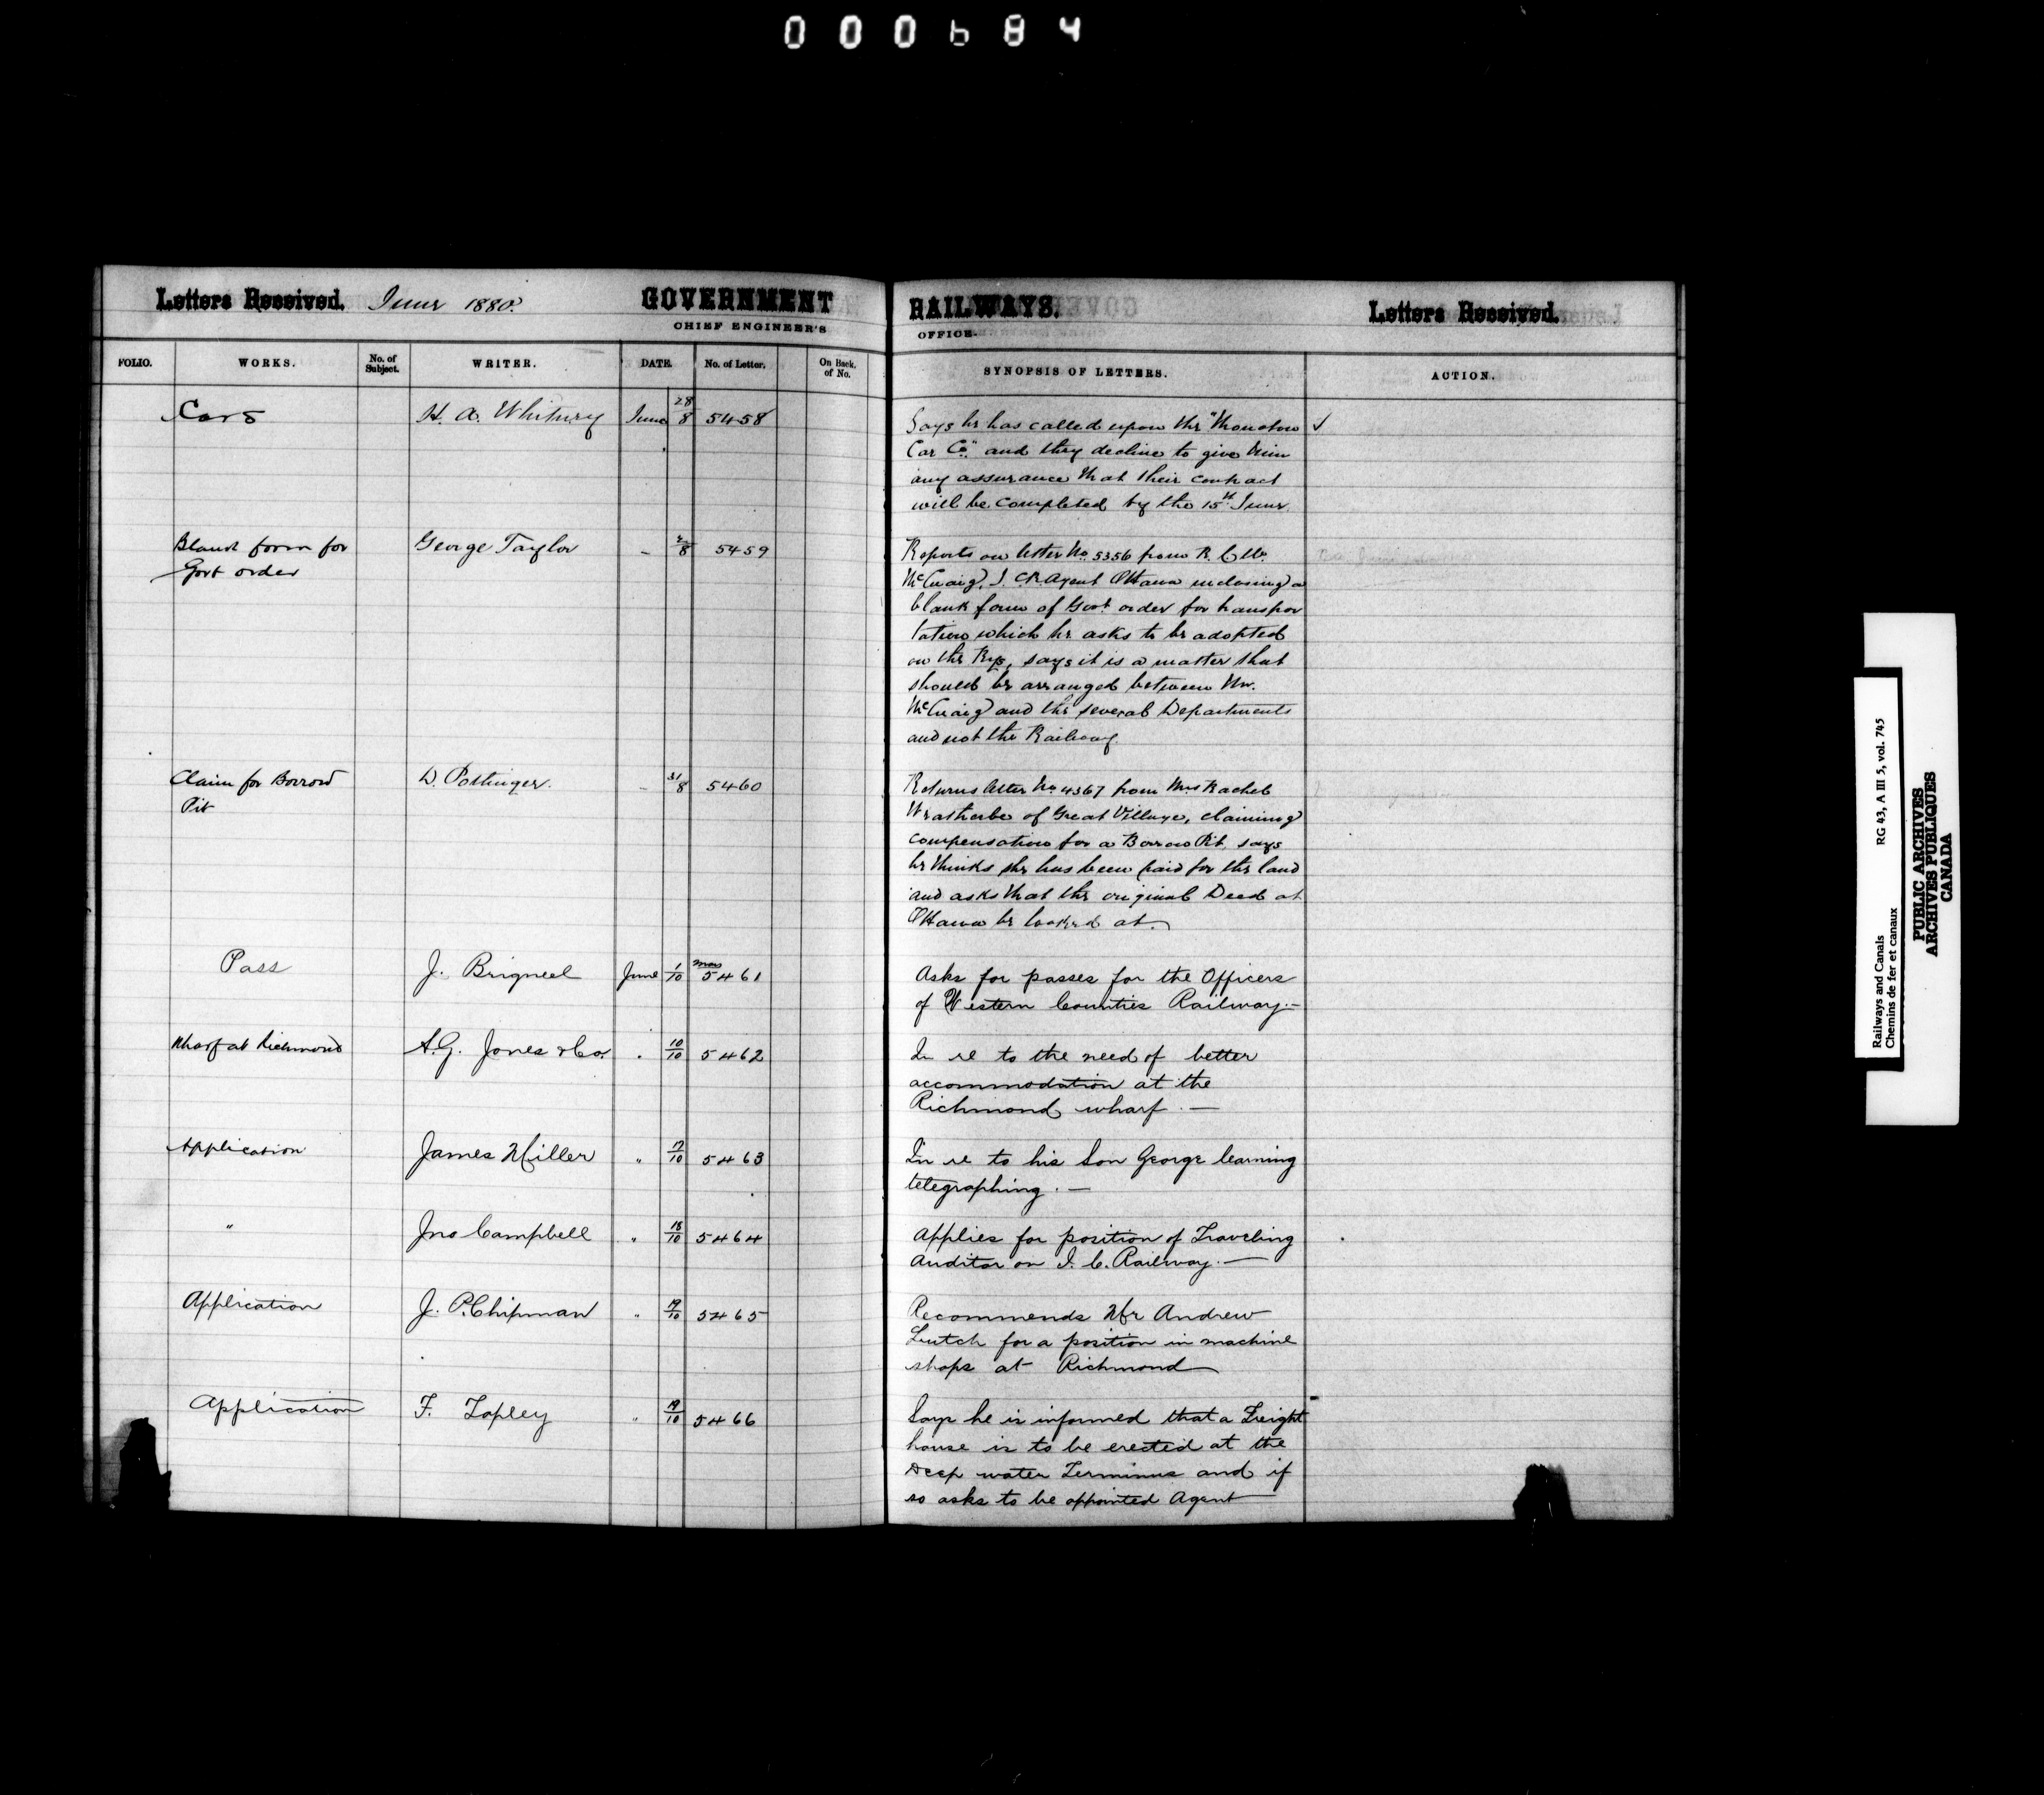 000684
Letters Received. June 1880. GOVERNMENT RAILWAYS. Letters Received.
CHIEF ENGINEER'S OFFICE.
FOLIO. WORKS. No. of Subject. WRITER. DATE. No. of Letter. On Back of No. SYNOPSIS OF LETTERS. ACTION.
Cars H. A. Whitney June 28/8 5458 Says he has called upon the "Moncton ✓
Car Co." and they decline to give him
any assurance that their contract
will be completed by the 15th June.
Blank form for George Taylor " 2/8 5459 Reports on letter No. 5356 from R. C. W.
Govt order McCuaig, I. C. R. Agent Ottawa inclosing a
blank form of Govt order for transpor
tation which he asks to be adopted
on the Rys, says it is a matter that
should be arranged between Mr.
McCuaig and the several Departments
and not the Railway.
Claim for Borrow D. Pottinger. " 31/8 5460 Returns letter No 4367 from Mrs Rachel
Pit Weatherbe of Great Village, claiming
compensation for a Borrow Pit, says
he thinks she has been paid for the land
and asks that the original Deed at
Ottawa be looked at.
Pass J. Brignell June 1/10 5461 Asks for passes for the Officers
of Western Counties Railway.—
Wharf at Richmond A.G. Jones & Co. " 10/10 5462 In re to the need of better
accommodation at the
Richmond wharf.—
Application James Miller " 17/10 5463 In re to his Son George learning
telegraphing.—
" Jno Campbell " 18/10 5464 Applies for position of Traveling
Auditor on I. C. Railway.—
Application J. P. Chipman " 19/10 5465 Recommends Mr Andrew
Lutch for a position in machine
shops at Richmond
Application F. Tapley " 19/10 5466 Says he is informed that a Freight
house is to be erected at the
Deep water Terminus and if
so asks to be appointed Agent
Railways and Canals RG 43, A III 5, vol. 745
Chemins de fer et canaux
PUBLIC ARCHIVES
ARCHIVES PUBLIQUES
CANADA